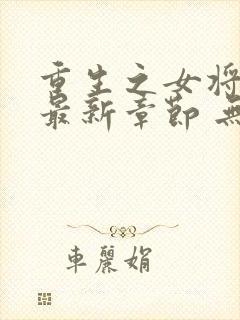 重生之女将
最新章節 無
车麗娟